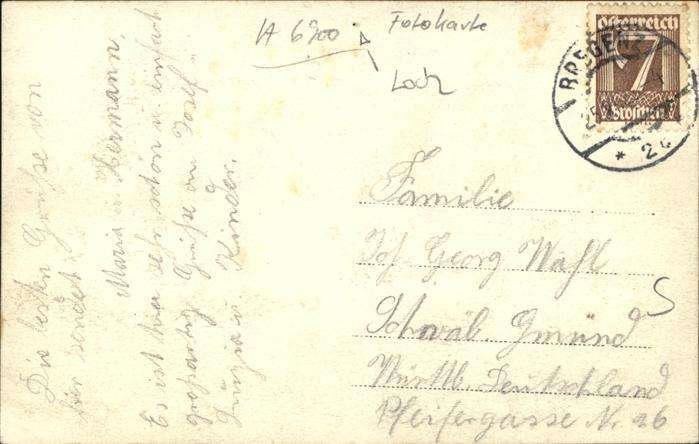 A 6900
Fotokarte
Loch
österreich
7
Groschen
BREGENZ
25
* 2
Familie
Joh. Georg Wahl
Schwäb. Gmünd
Württb. Deutschland
Pfeifergasse Nr. 26
5
Die besten Grüße von
hier sendet
Maria u. Hermann.
Es ist hier sehr schön u. einfach
großartig Grüße an Josef
u. Kinder.